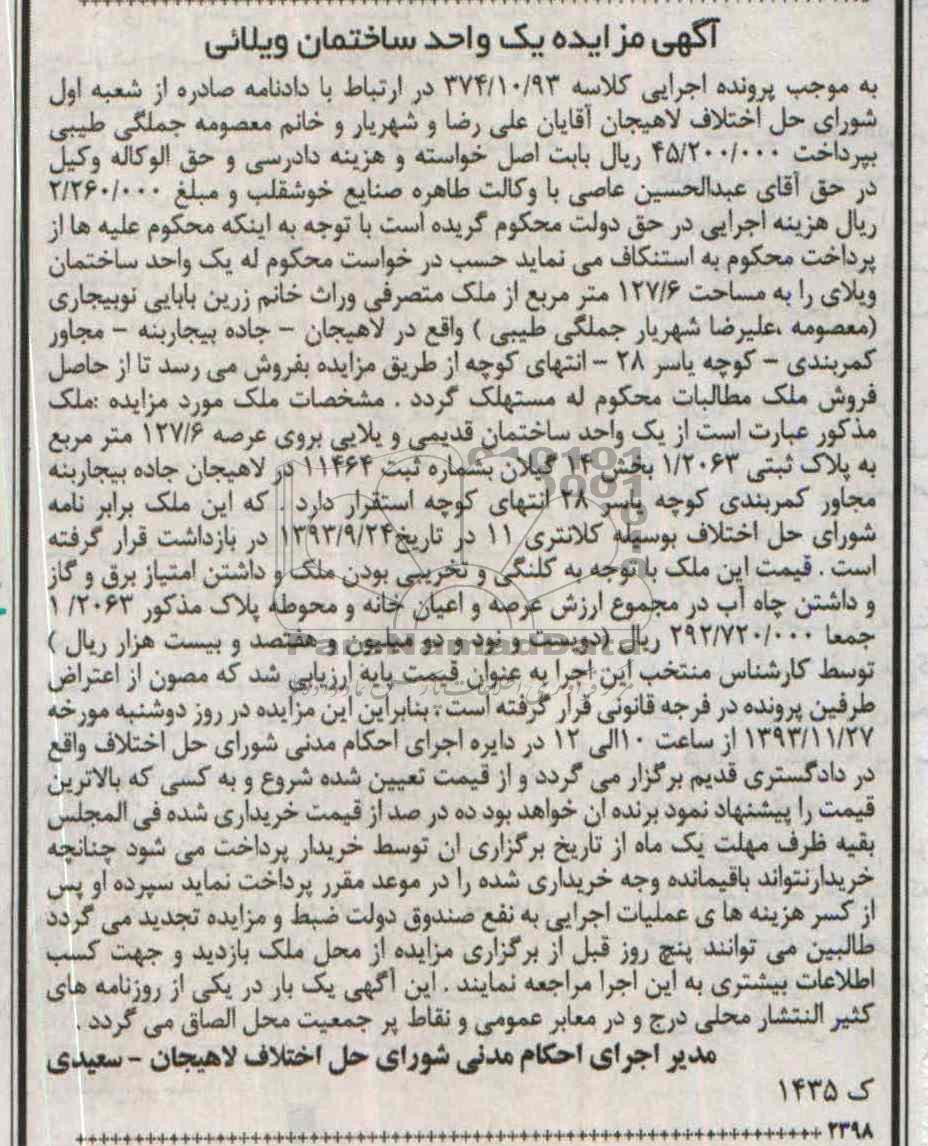 آگهی مزایده یک واحد ساختمان ویلائی
به موجب پرونده اجرایی کلاسه ۳۷۴/۱۰/۹۳ در ارتباط با دادنامه صادره از شعبه اول
شورای حل اختلاف لاهیجان آقایان علی رضا و شهریار و خانم معصومه جملگی طیبی
بپرداخت ۴۵/۲۰۰/۰۰۰ ریال بابت اصل خواسته و هزینه دادرسی و حق الوکاله وکیل
در حق آقای عبدالحسین عاصی با وکالت طاهره صنایع خوشقلب و مبلغ ۲/۲۶۰/۰۰۰
ریال هزینه اجرایی در حق دولت محکوم گریده است با توجه به اینکه محکوم علیه ها از
پرداخت محکوم به استنکاف می نماید حسب در خواست محکوم له یک واحد ساختمان
ویلای را به مساحت ۱۲۷/۶ متر مربع از ملک متصرفی وراث خانم زرین بابایی نوبیجاری
(معصومه ،علیرضا شهریار جملگی طیبی ) واقع در لاهیجان – جاده بیجاربنه – مجاور
کمربندی – کوچه یاسر ۲۸ – انتهای کوچه از طریق مزایده بفروش می رسد تا از حاصل
فروش ملک مطالبات محکوم له مستهلک گردد . مشخصات ملک مورد مزایده :ملک
مذکور عبارت است از یک واحد ساختمان قدیمی و یلایی بروی عرصه ۱۲۷/۶ متر مربع
به پلاک ثبتی ۱/۲۰۶۳ بخش ۱۴ گیلان بشماره ثبت ۱۱۴۶۴ در لاهیجان جاده بیجاربنه
مجاور کمربندی کوچه یاسر ۲۸ انتهای کوچه استقرار دارد که این ملک برابر نامه
شورای حل اختلاف بوسیله کلانتری ۱۱ در تاریخ۱۳۹۳/۹/۲۴ در بازداشت قرار گرفته
است . قیمت این ملک با توجه به کلنگی و تخریبی بودن ملک و داشتن امتیاز برق و گاز
و داشتن چاه آب در مجموع ارزش عرصه و اعیان خانه و محوطه پلاک مذکور ۱/۲۰۶۳
جمعا ۲۹۲/۷۲۰/۰۰۰ ریال (دویست و نود و دو میلیون و هفتصد و بیست هزار ریال )
توسط کارشناس منتخب این اجرا به عنوان قیمت پایه ارزیابی شد که مصون از اعتراض
طرفین پرونده در فرجه قانونی قرار گرفته است ، بنابراین این مزایده در روز دوشنبه مورخه
۱۳۹۳/۱۱/۲۷ از ساعت ۱۰الی ۱۲ در دایره اجرای احکام مدنی شورای حل اختلاف واقع
در دادگستری قدیم برگزار می گردد و از قیمت تعیین شده شروع و به کسی که بالاترین
قیمت را پیشنهاد نمود برنده ان خواهد بود ده در صد از قیمت خریداری شده فی المجلس
بقیه ظرف مهلت یک ماه از تاریخ برگزاری ان توسط خریدار پرداخت می شود چنانچه
خریدارنتواند باقیمانده وجه خریداری شده را در موعد مقرر پرداخت نماید سپرده او پس
از کسر هزینه ها ی عملیات اجرایی به نفع صندوق دولت ضبط و مزایده تجدید می گردد
طالبین می توانند پنچ روز قبل از برگزاری مزایده از محل ملک بازدید و جهت کسب
اطلاعات بیشتری به این اجرا مراجعه نمایند . این آگهی یک بار در یکی از روزنامه های
کثیر النتشار محلی درج و در معابر عمومی و نقاط پر جمعیت محل الصاق می گردد .
مدیر اجرای احکام مدنی شورای حل اختلاف لاهیجان – سعیدی
ک ۱۴۳۵
۲۳۹۸